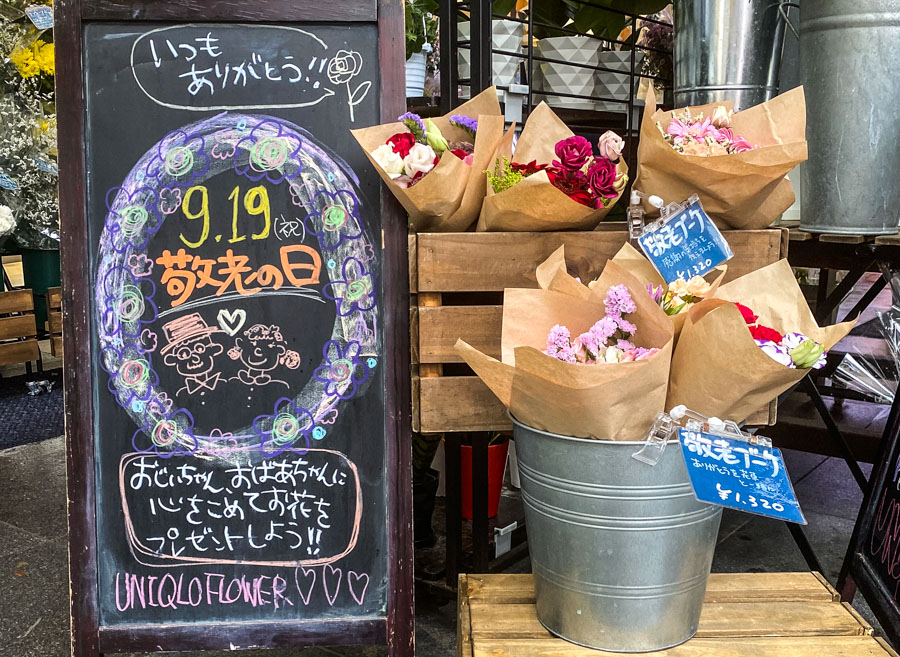 いつも
ありがとう!!
9.19(祝)
敬老の日
おじいちゃん、おばあちゃんに
心をこめてお花を
プレゼントしよう!!
UNIQLO FLOWER
敬老ブーケ
¥1.320
敬老ブーケ
ありがとうを花束
と一緒に
¥1.320